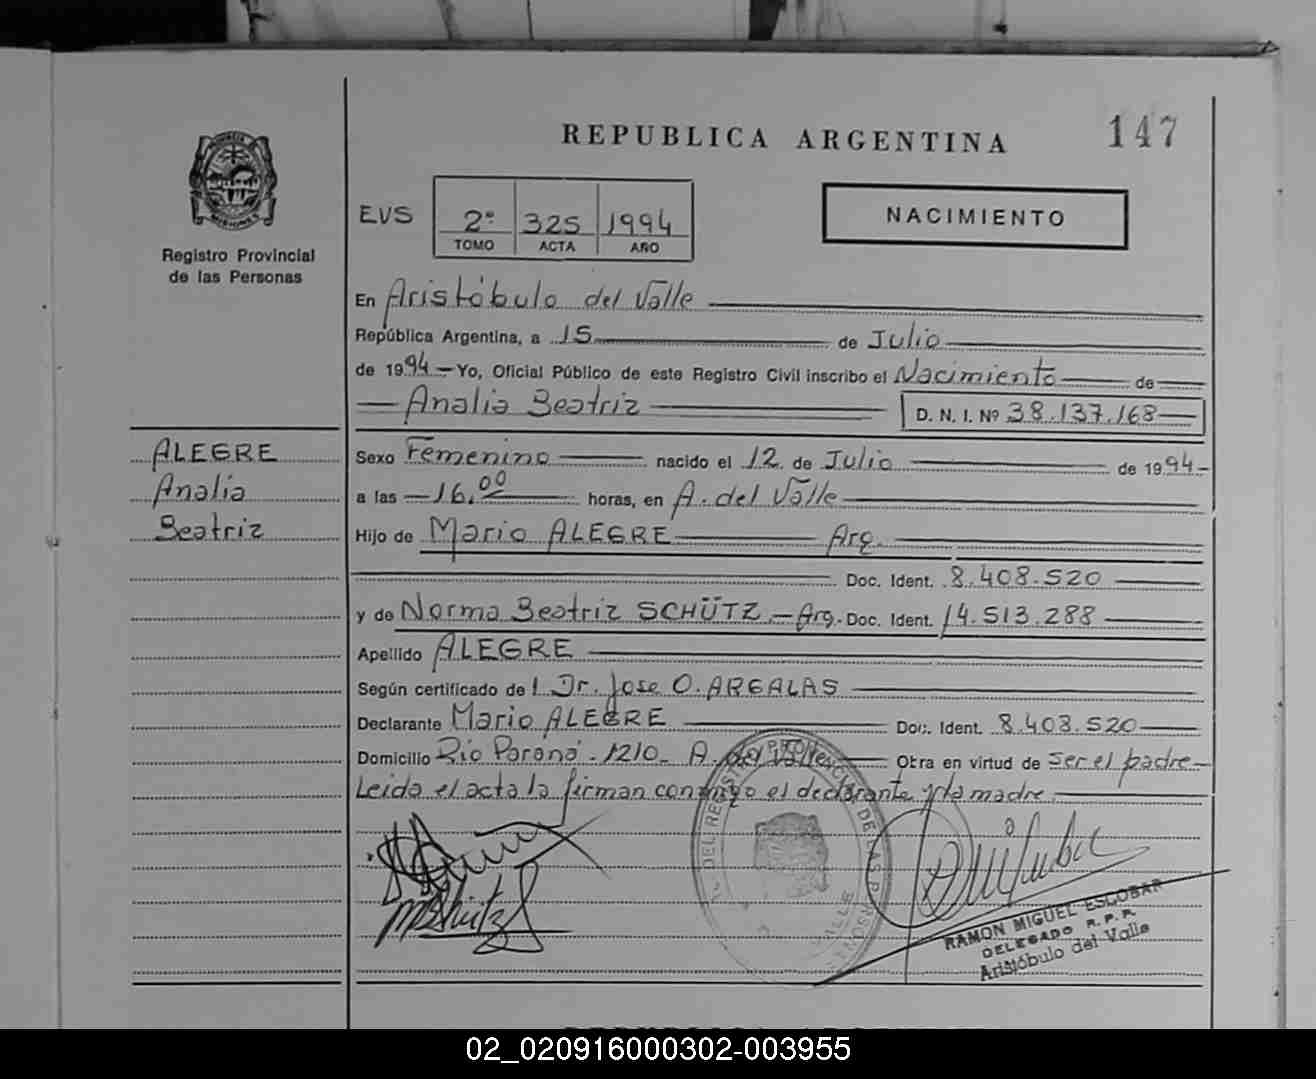 REPUBLICA ARGENTINA
147
Registro Provincial
de las Personas
EVS
2º 325 1994
TOMO ACTA AÑO
NACIMIENTO
En Aristóbulo del Valle
República Argentina, a 15 de Julio
de 1994 - Yo, Oficial Público de este Registro Civil inscribo el Nacimiento de
Analia Beatriz D. N. I. Nº 38.137.168
ALEGRE
Analia
Beatriz
Sexo Femenino nacido el 12 de Julio de 1994
a las 16.00 horas, en A. del Valle
Hijo de Mario ALEGRE Arg.
Doc. Ident. 8.408.520
y de Norma Beatriz SCHÜTZ - Arg. Doc. Ident. 14.513.288
Apellido ALEGRE
Según certificado del Dr. Jose O. ARGALAS
Declarante Mario ALEGRE Doc. Ident. 8.408.520
Domicilio Rio Paraná 1210 - A. del Valle Obra en virtud de ser el padre
Leida el acta la firman conmigo el declarante y la madre.
RAMON MIGUEL ESCOBAR
DELEGADO R. P. P.
Aristóbulo del Valle
02_020916000302-003955